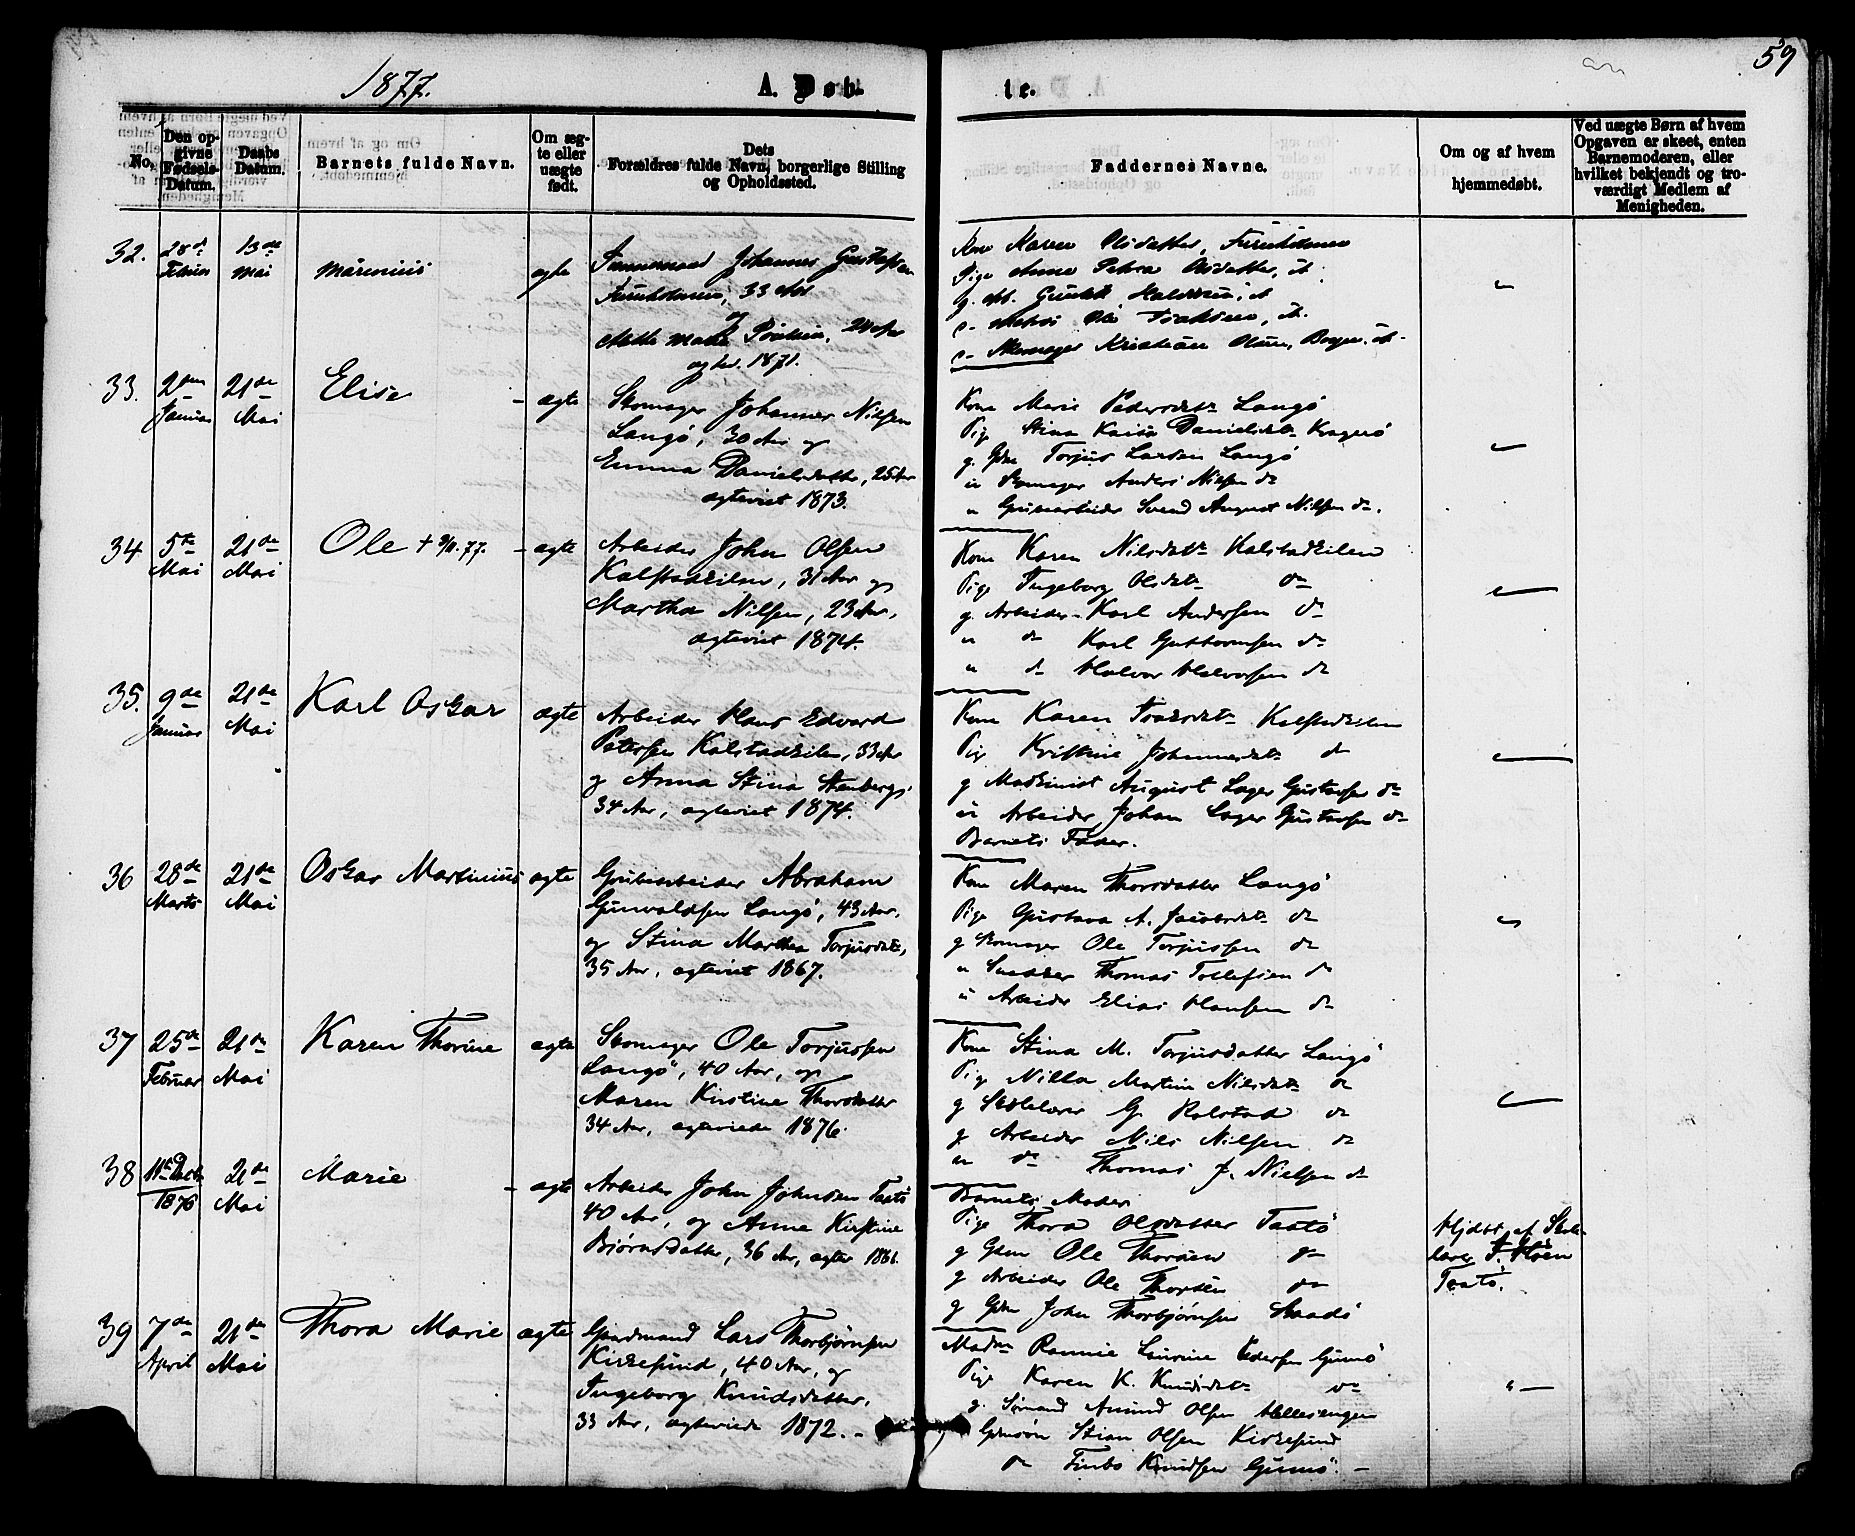 59
1877.
A. Døb-
te.
No.
Den op-
givne
Fødsels-
Datum.
Daabs
Datum.
Barnets fulde Navn.
Om æg-
te eller
uægte
født.
Dets
Forældres fulde Navn, borgerlige Stilling
og Opholdssted.
Faddernes Navne.
Om og af hvem
hjemmedøbt.
Ved uægte Børn af hvem
Opgaven er skeet, enten
Barnemoderen, eller
hvilket bekjendt og tro-
værdigt Medlem af
Menigheden.
32.
13de
Mai
Marinius
ægte
Johannes Gustafsen
33 Aar
og
Mette Marie
1871.
Kone Karen Olsdatter,
Pige Anne Petra Olsdatter,
Kristian Olsen,
33.
2den
Januar
21de
Mai
Elise
ægte
Skomager Johannes Nilsen
Langö, 30 Aar og
Emma Danielsdatter, 25 Aar
ægteviet 1873.
Kone Marie Pedersdtr Langö
Pige Stina Kaisa Danielsdtr Kragerö
g. Gdm Torjus Larsen Langö
" Skomager Anders Nilsen do
" Grubearbeider Svend August Nilsen do.
34
5te
Mai
21de
Mai
Ole
ægte
Arbeider John Olsen
Kalstadkilen, 31 Aar og
Martha Nilsen, 23 Aar,
ægteviet 1874.
Kone Karen Nilsdtr Kalstadkilen
Pige Ingeborg Olsdtr do
g. Arbeider Karl Andersen do
" do Karl Guttormsen do
" do Halvor Halvorsen do
35.
9de
Januar
21de
Mai
Karl Oskar
ægte
Arbeider Hans Edvard
Petersen Kalstadkilen, 33 Aar
og Anna Stina Stenberg,
34 Aar, ægteviet 1874.
Kone Karen Isaksdtr Kalstadkilen
Pige Kristine Johannesdtr do
g Maskinist August Lager Gustavsen do
" Arbeider Johan Lager Gustavsen do
Barnets Fader.
36
28de
Marts
21de
Mai
Oskar Martinius
ægte
Grubearbeider Abraham
Gunvaldsen Langö, 43 Aar,
og Stina Marthea Torjusdtr,
35 Aar, ægteviet 1867.
Kone Maren Thorsdatter Langö
Pige Gustava A. Jacobsdtr do
g Skomager Ole Torjussen do
" Snedker Thomas Tollefsen do
" Arbeider Elias Hansen do
37
25de
Februar
21de
Mai
Karen Thorine
ægte
Skomager Ole Torjussen
Langö, 40 Aar, og
Maren Kirstine Thorsdatter
34 Aar, ægteviede 1876.
Kone Stina M. Torjusdatter Langö
Pige Nilla Martine Nilsdtr do
g Skolelærer G. Kalstad do
g Arbeider Nils Nilsen do
" do Thomas J. Nielsen do
38
1876
21de
Mai
Marie
ægte
Arbeider John Johnsen Taatö
40 Aar, og Anne Kirstine
Bjørnsdatter, 36 Aar, ægtev 1861.
Barnets Moder
Pige Thora Olsdatter Taatö
g Gdm Ole Thorsen do
g Arbeider Ole Thorsen do
g Gdm John Thorbjørnsen
Hjdbt af Skole-
lærer T. Høen
Taatö.
39
7de
April
21de
Mai
Thora Marie
ægte
Gaardmand Lars Thorbjørnsen
Kirkesund, 40 Aar, og
Ingeborg Knudsdatter,
33 Aar, ægteviede 1872.
Laurine Pedersen Gumö
Pige Karen K. Knudsdtr do
g. Sømand Amund Olsen Hellesengen
Gdmsön Stian Olsen Kirkesund
do Knudsen Gumö.